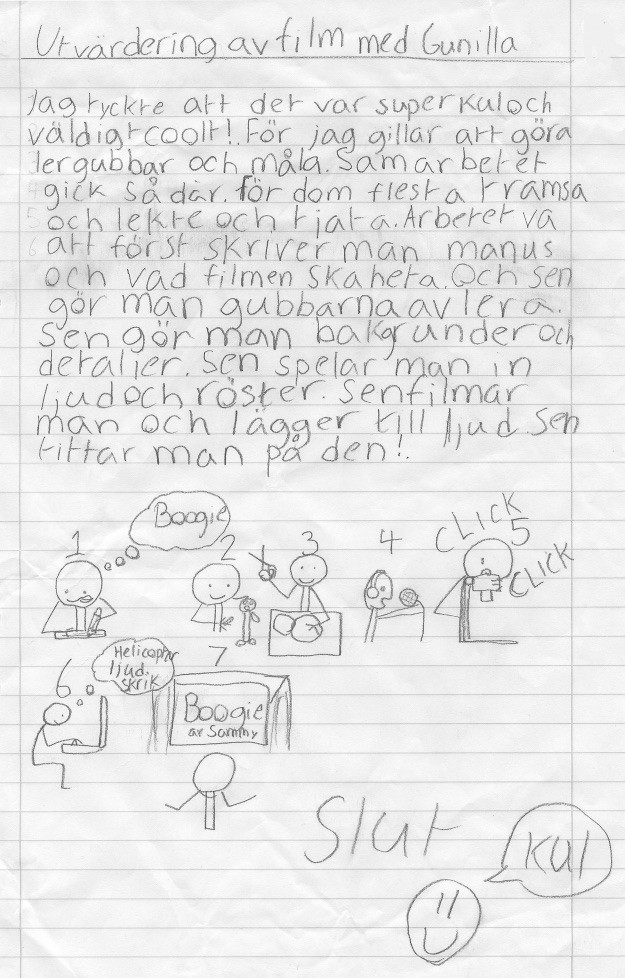 Utvärdering av film med Gunilla
Jag tyckte att det var superkul och
väldigt coolt!. För jag gillar att göra
lergubbar och måla. Samarbetet
gick sådär. för dom flesta tramsa
och lekte och tjata. Arbetet va
att först skriver man manus
och vad filmen ska heta. Och sen
gör man gubbarna av lera.
Sen gör man bakgrunder och
detaljer. Sen spelar man in
ljud och röster. Sen filmar
man och lägger till ljud. Sen
tittar man på den!.
1
Boogie
2
3
4
CLICK
5
CLICK
6
Helicopter
ljud.
skrik
7
Boogie
av Sammy
Slut
kul